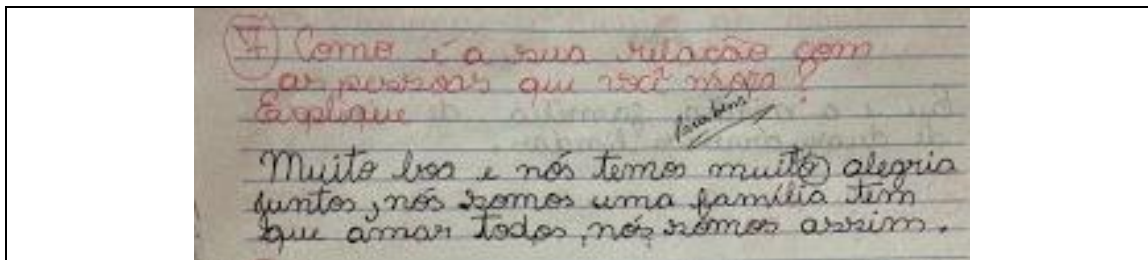 7 Como é a sua relação com
as pessoas que você mora?
Explique
Parabéns!
Muito boa e nós temos muito alegria
juntos, nós somos uma família tem
que amar todos, nós somos assim.